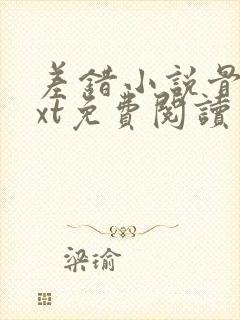 差錯小說最
xt免費閱讀
梁瑜